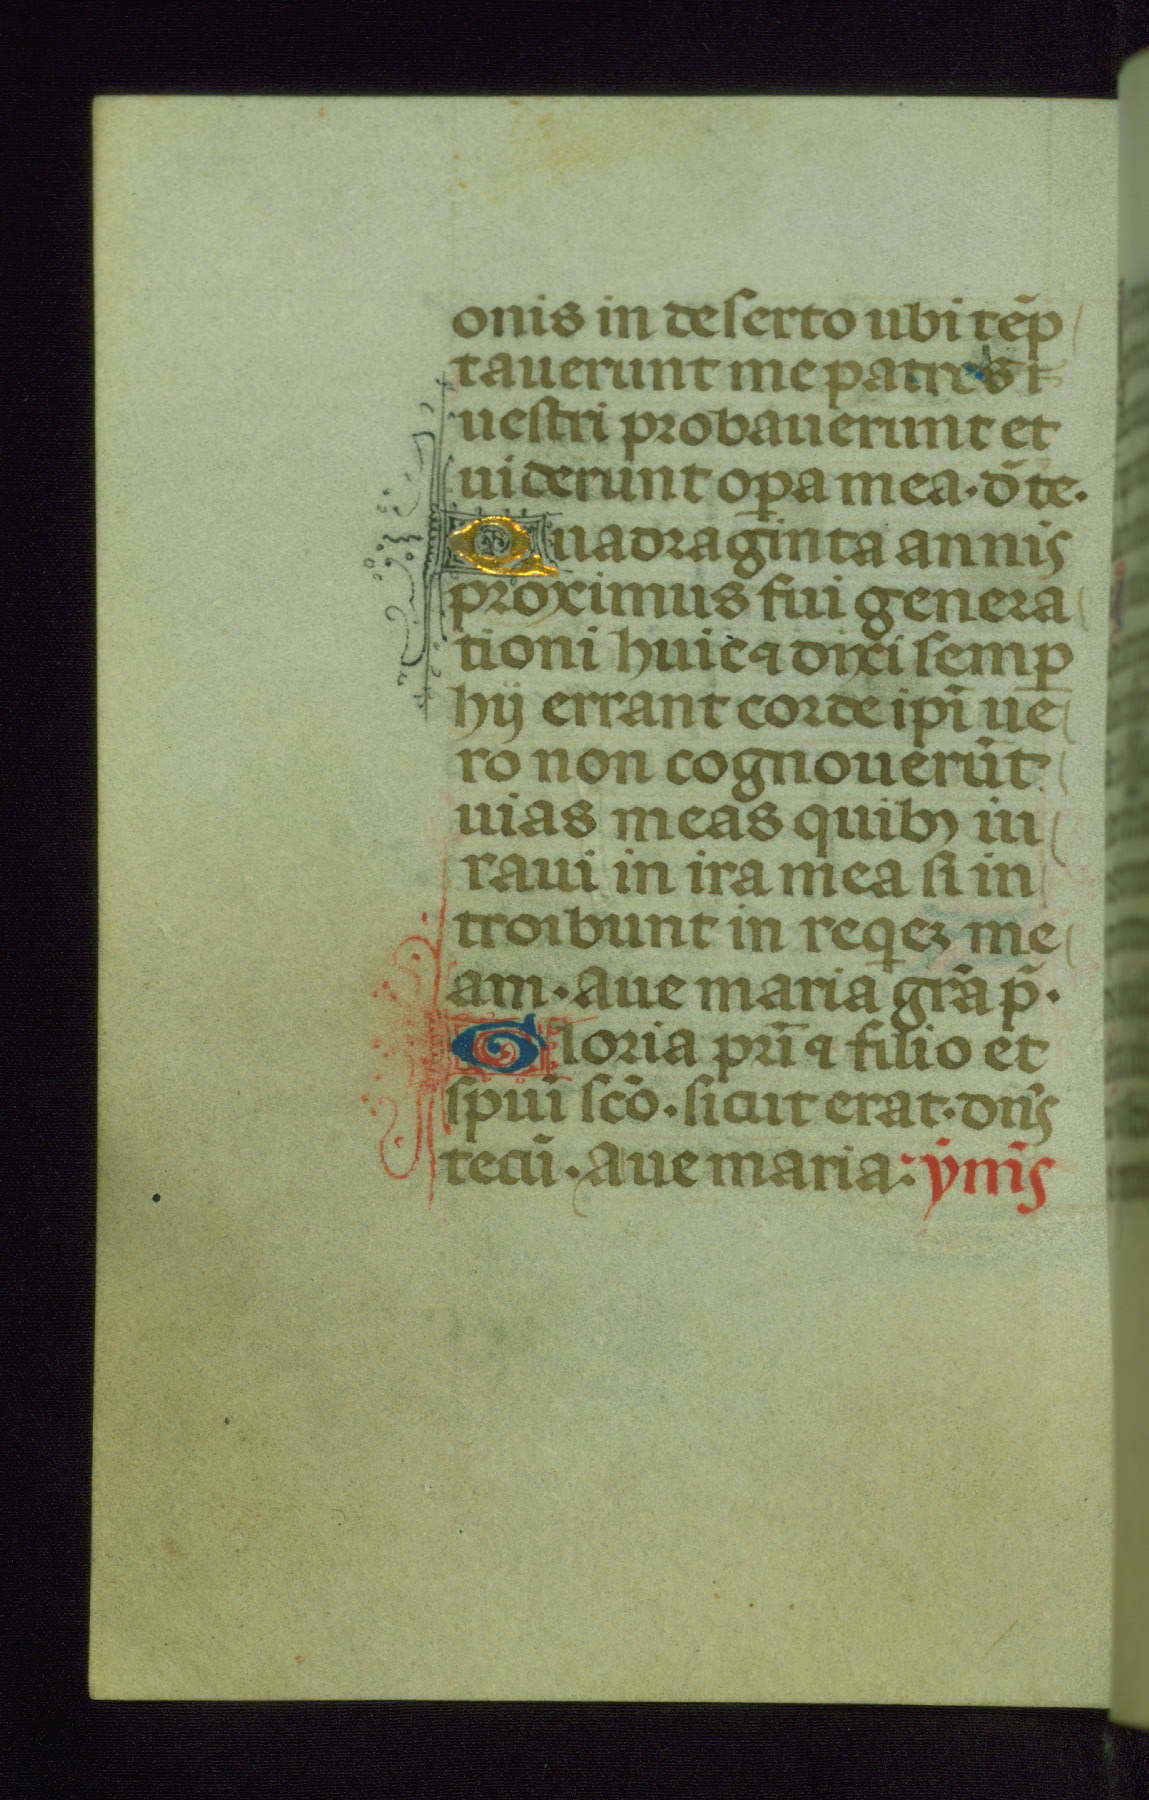 onis in deserto ubi tẽp
tauerunt me patres
uestri probauerunt et
uiderunt oꝑa mea· d̃ te·
Quadraginta annis
proximus fui genera
tioni huic ⁊ dixi semꝑ
hij errant corde ip̃i ue
ro non cognouerũt
uias meas quibꝫ iu
raui in ira mea si in
troibunt in reqeꝫ me
am· aue maria gr̃a p̃·
Gloria pr̃i ⁊ filio et
sp̃ui sc̃o· sicut erat· dñs
tecũ· Aue maria: ỹms̃